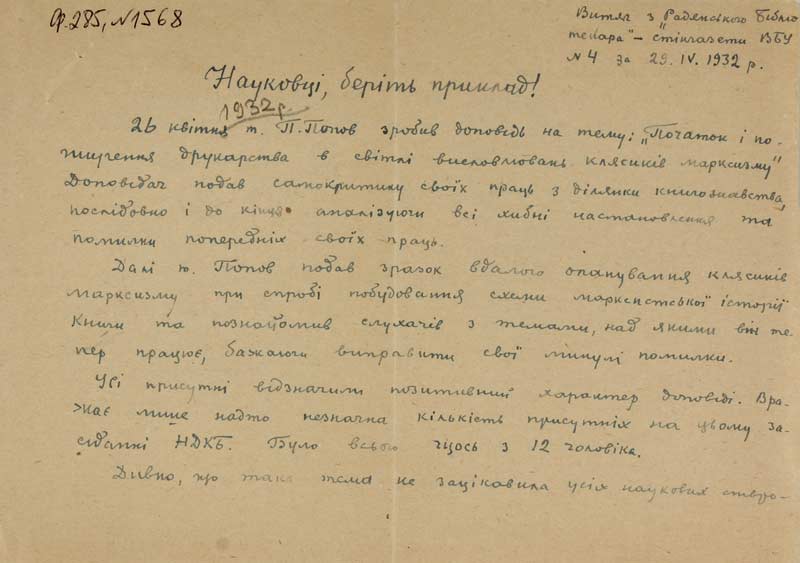 Ф. 285, № 1568
Витяг з „Радянського Бібліо
текаря" – стінгазети ВБУ
№ 4 за 29. IV. 1932 р.
Науковці, беріть приклад!
1932 р.
26 квітня т. П. Попов зробив доповідь на тему: „Початок і по-
ширення друкарства в світлі висловлювань клясиків марксизму"
Доповідач подав самокритику своїх праць з ділянки книгознавства,
послідовно і до кінця аналізуючи всі хибні настановлення та
помилки попередніх своїх праць.
Далі т. Попов подав зразок вдалого опанування клясиків
марксизму при спробі побудовання схеми марксистської історії
книги та познайомив слухачів з темами, над якими він те-
пер працює, бажаючи виправити свої минулі помилки.
Усі присутні відзначили позитивний характер доповіді. Вра-
жає лише надто незначна кількість присутніх на цьому за-
сіданні НДКБ. Було всього щось з 12 чоловіка.
Дивно, що така тема не зацікавила усіх наукових